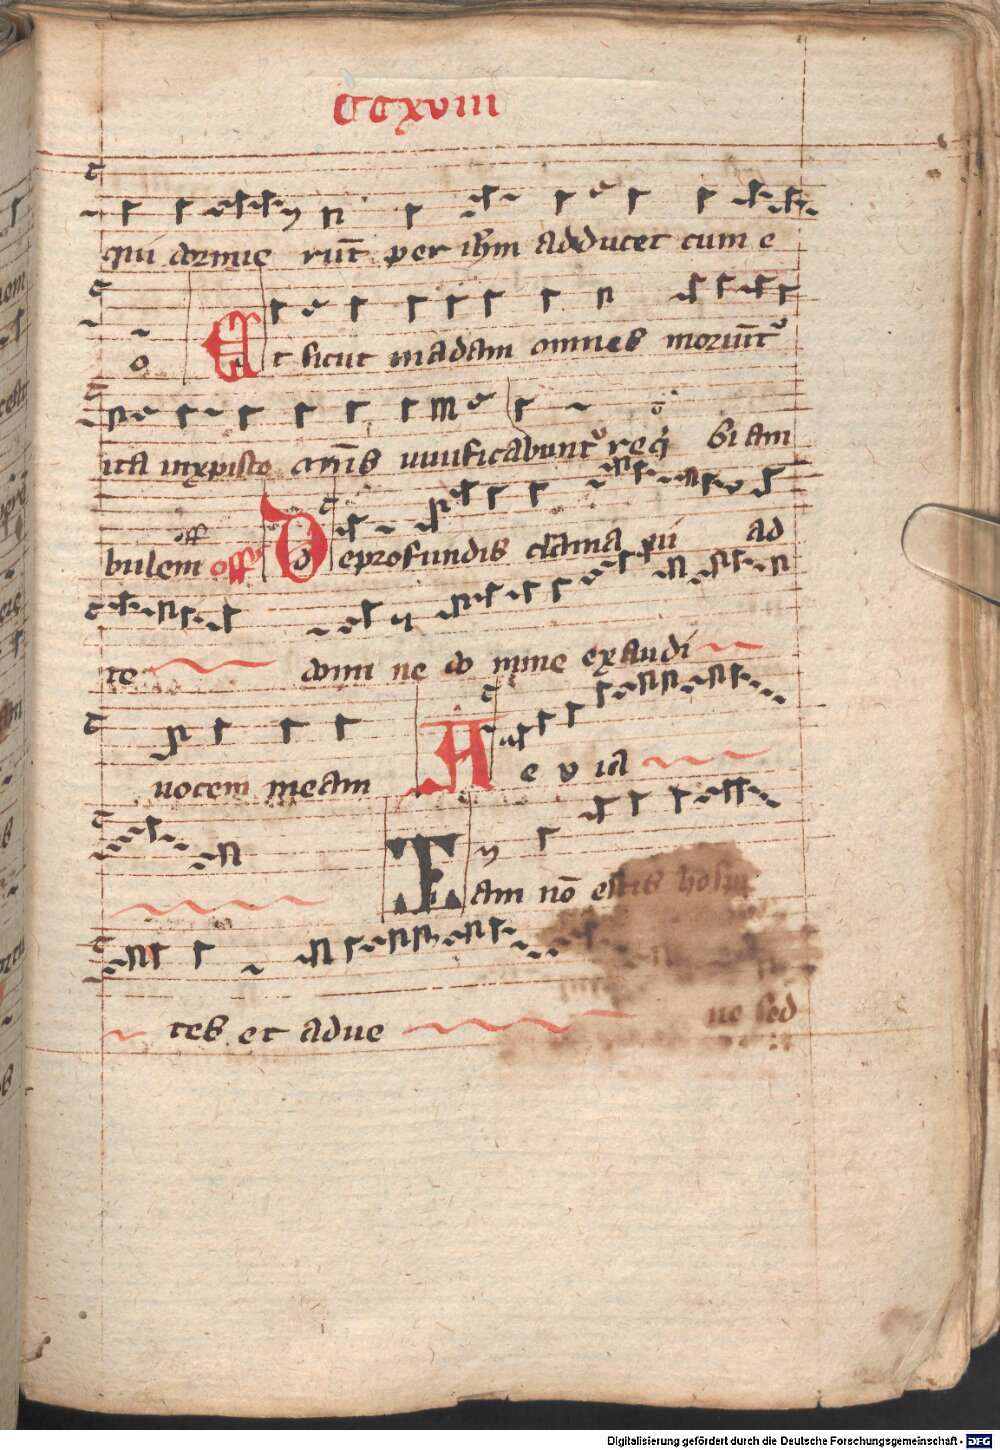 CCxviii
qui dormie rūt per ihm adducet cum e
o Et sicut in adam omnes moriūt
ita in xpisto om̄s uiuificabunt req̄ Si am
bulem off Deprofundis clama ui ad
te domi ne do mine exaudi
uocem meam A e v ia
Iam nō estis hospi
tes et adue ne sed
Digitalisierung gefördert durch die Deutsche Forschungsgemeinschaft - DFG